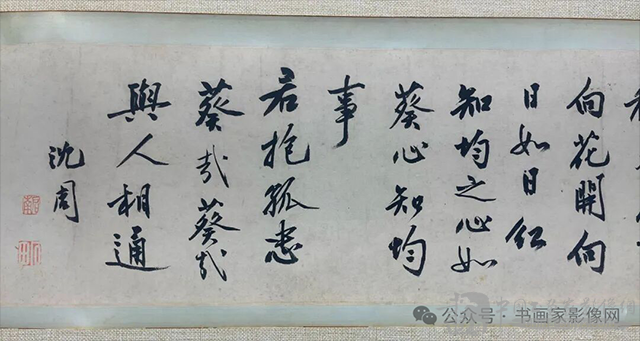 向花開向
日如日紅
知均之心如
葵心知均
事
君抱孤忠
葵哉葵哉
與人相通
沈周
公众号·书画家影像网